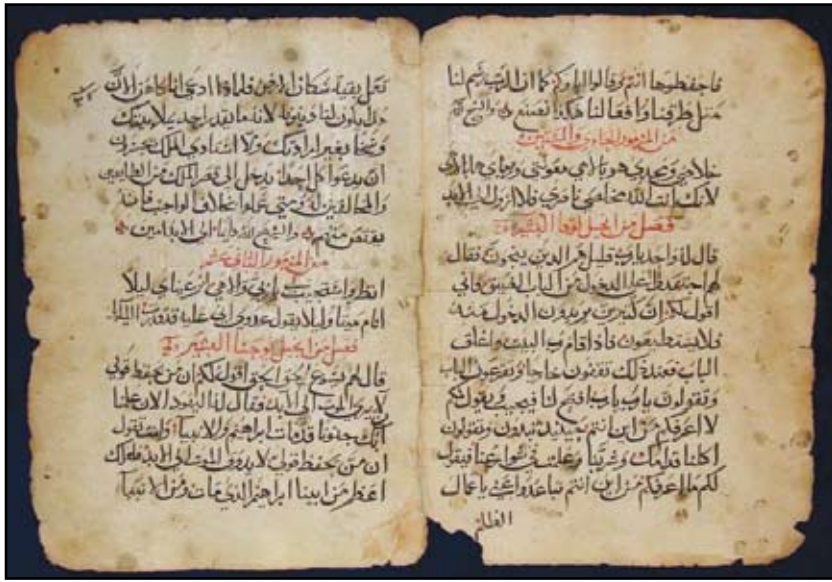 فاحفظوها انتم وقالوا وكما ان الرب رسم لنا
مثل طرقنا وافعالنا هكذا نصنع
من المزمور الحادي والستين
خلاصي ومجدي هو بالاهي معونتي ورجاي
لانك انت الله مخلصي ناصري فلا ازول الى الابد
فصل من انجيل لوقا البشير
قال له واحد يارب قليل هم الذين ينجون فقال
لهم اجتهدوا على الدخول من الباب الضيق فاني
اقول لكم ان كثيرين يريدون الدخول منه
فلا يستطيعون فاذا قام رب البيت واغلق
الباب فعند ذلك تقفون خارجا وتقرعون الباب
وتقولون يارب يارب افتح لنا فيجيب ويقول لكم
لا اعرفكم من اين انتم حينيذ تبدون وتقولون
اكلنا قدامك وشربنا وعلمت في شوارعنا فيقول
لكم ما اعرفكم من اين انتم تباعدوا عني ياعمال
الظلم
بقية سكان الارض فلماذا ادعى انا الان
لانه ما يقدر احد
بغير ارادتك ولا الملك
ان يدعوا كل احد يدخل الى الملك من الطايعين
والمخالفين له ومتى عملوا بخلاف الواجب فانه
ينتقم منهم والسبح لله دايما الى الابد امين
من المزمور الثاني عشر
انظر واستجيب لي ربي والاهي انر عيناي ليلا
انام ميتا وليلا يقول عدوي اني عليه قد قدرت
فصل من انجيل يوحنا البشير
قال لهم يسوع الحق الحق اقول لكم ان من يحفظ قولي
لا يرى الموت الى الابد فقال له اليهود الان علمنا
انك جنون قد مات ابراهيم والانبيا وانت تقول
ان من يحفظ قولي لا يذوق الموت الى الابد لعلك
اعظم من ابينا ابراهيم الذي مات ومن الانبيا